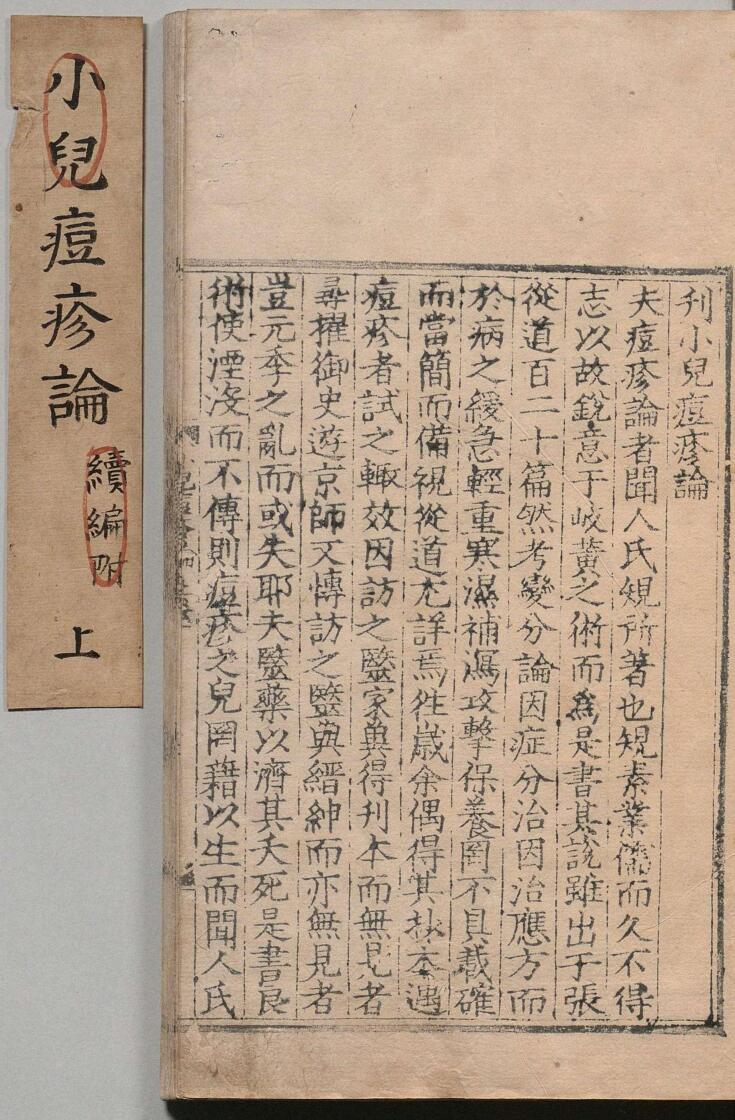 小兒痘疹論
續編附
上
刊小兒痘疹論
夫痘疹論者聞人氏規所著也規素業儒而久不得
志以故銳意于岐黃之術而爲是書其說雖出于張
從道百二十篇然考變分論因症分治因治應方而
於病之緩急輕重寒濕補瀉攻擊保養罔不具載確
而當簡而備視從道尤詳焉徃歲余偶得其抄本遇
痘疹者試之輙效因訪之毉家兾得刊本而無見者
尋擢御史遊京師又慱訪之毉與縉紳而亦無見者
豈元季之亂而或失耶夫毉藥以濟其夭死是書良
術使湮没而不傳則痘疹之兒罔藉以生而聞人氏